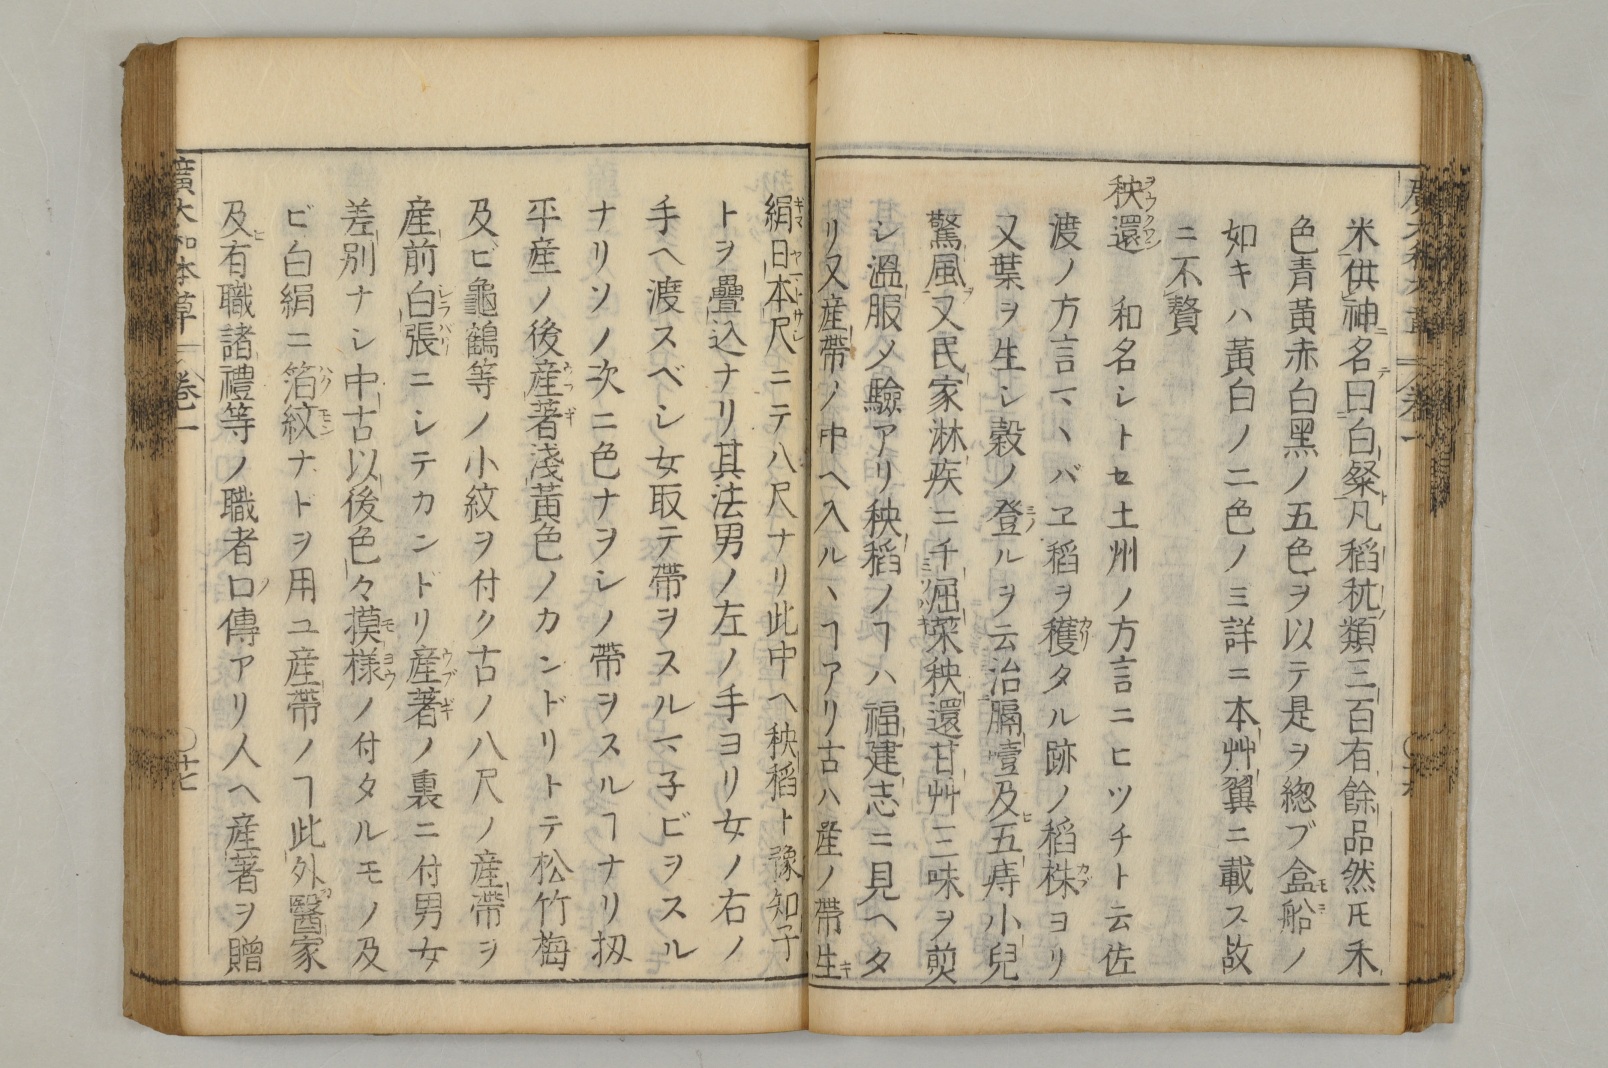 米供神名曰白粲凡稻秔類三百有餘品然𪜈禾
色青黃赤白黑ノ五色ヲ以テ是ヲ緫ブ盒船ノ
如キハ黃白ノ二色ノミ詳ニ本艸翼ニ載ス故
ニ不贅
秧還 和名シトセ土州ノ方言ニヒツチト云佐
渡ノ方言マヽバヱ稻ヲ穫タル跡ノ稻株ヨリ
又葉ヲ生シ穀ノ登ルヲ云治膈噎及五痔小兒
驚風又民家淋疾ニ千堀菜秧還甘艸三味ヲ煎
シ溫服メ驗アリ秧稻ノヿハ福建志ニ見ヘタ
リ又産帶ノ中ヘ入ルヽヿアリ古ハ産ノ帶生
絹日本尺ニテ八尺ナリ此中ヘ秧稻ト豫知子
トヲ疊込ナリ其法男ノ左ノ手ヨリ女ノ右ノ
手ヘ渡スベシ女取テ帶ヲスルマヽ子ビヲスル
ナリソノ次ニ色ナヲシノ帶ヲスルヿナリ扨
平産ノ後産著淺黃色ノカンドリトテ松竹梅
及ビ龜鶴等ノ小紋ヲ付ク古ノ八尺ノ産帶ヲ
産前白張ニシテカンドリ産著ノ裏ニ付男女
差別ナシ中古以後色々摸様ノ付タルモノ及
ビ白絹ニ箔紋ナドヲ用ユ産帶ノヿ此外醫家
及有職諸禮等ノ職者口傳アリ人ヘ産著ヲ贈
廣大和本草 卷一 〇廿七